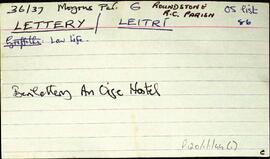 36/37 Moyrus Par. G ROUNDSTONE R.C. PARISH OS list 86
LETTERY / LEITRÍ
Griffiths: Law Life.
Benlettery An Óige Hostel
P120/1/1/44(1)
c